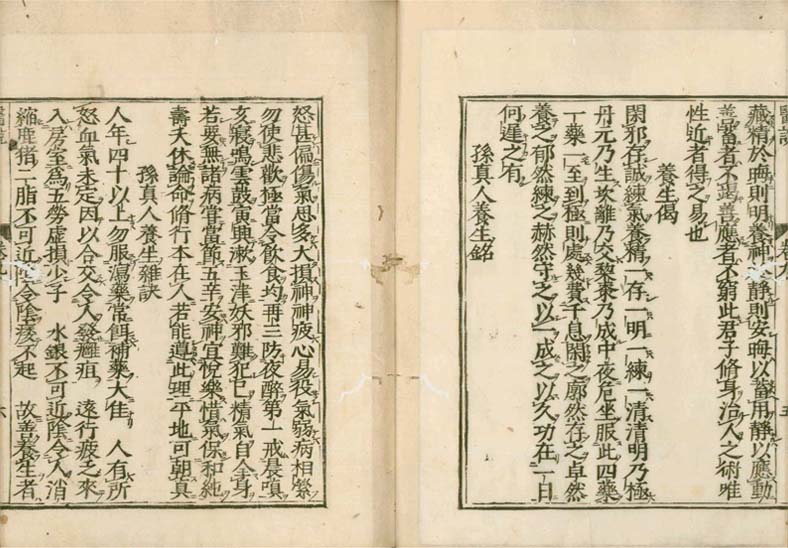 藏精於晦則明養神於靜則安晦以蓄用靜以應動
善蓄者不竭善應者不窮此君子脩身治人之術唯
性近者得之易也
養生偈
閑邪存誠練氣養精一存一明一練一清清明乃極
丹元乃生坎離乃交梨棗乃成中夜危坐服此四藥
一藥一至到極則處幾費千息閑之廓然存之卓然
養之郁然練之赫然守之以一成之以久功在一日
何遲之有
孫真人養生銘
怒甚偏傷氣思多大損神神疲心易役氣弱病相縈
勿使悲歡極當令飲食均再三防夜醉第一戒晨嗔
亥寢鳴雲鼓寅興漱玉津妖邪難犯已精氣自全身
若要無諸病常當節五辛安神宜悅樂惜氣保和純
壽夭休論命脩行本在人若能遵此理平地可朝真
孫真人養生雜訣
人年四十以上勿服瀉藥常餌補藥大佳　人有所
怒血氣未定因以合交令人發癰疽　遠行疲乏來
入房室為五勞虛損少子　水銀不可近陰令人消
縮鹿猪二脂不可近陰令陰痿不起　故善養生者